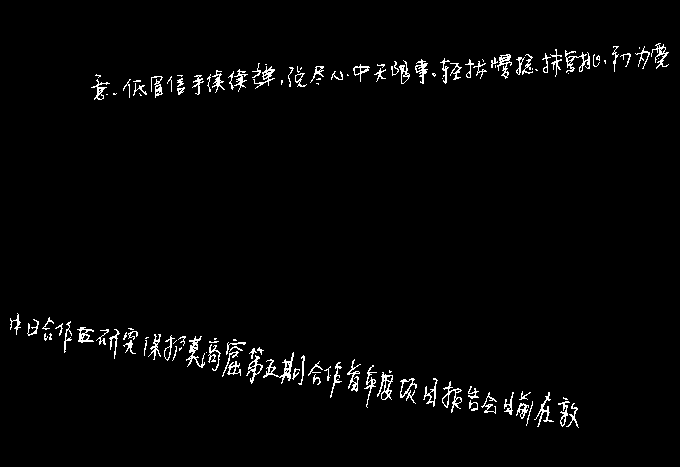 意。低眉信手续续弹,说尽心中无限事。轻拢慢捻抹复挑,初为霓
中日合作研究保护莫高窟第五期合作首年度项目报告会日前在敦